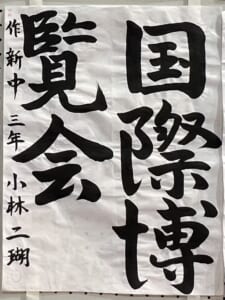 国際博
覧会
作新中 三年 小林二瑚